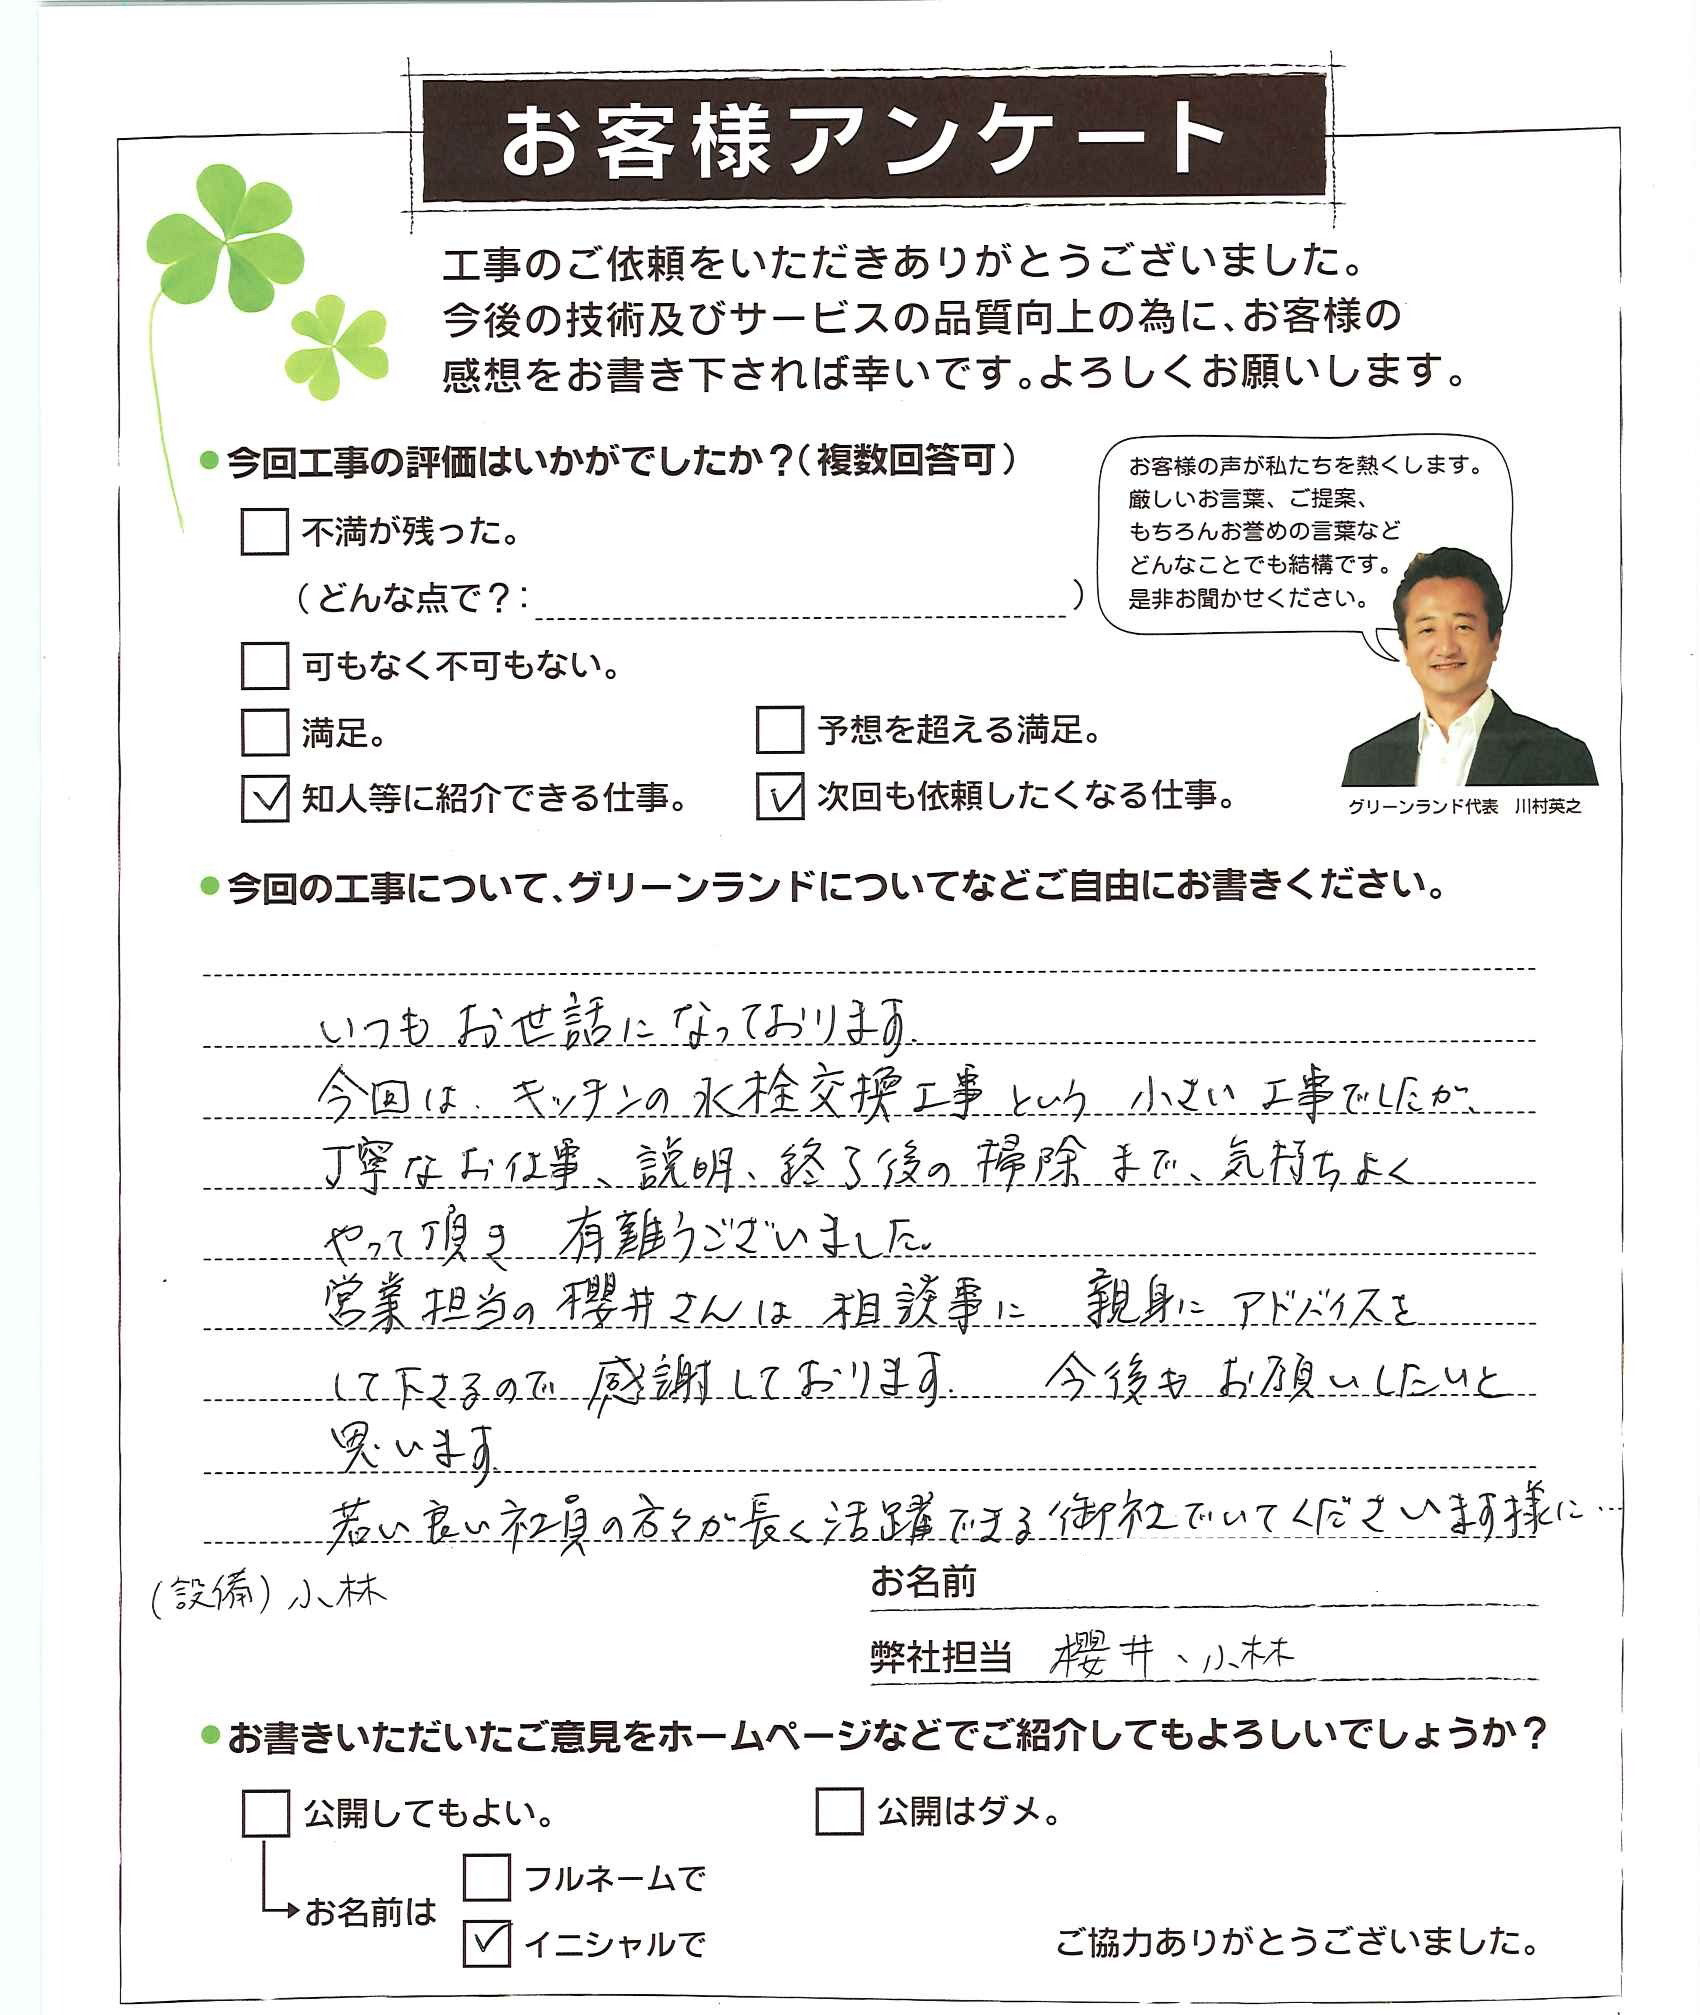 お客様アンケート
工事のご依頼をいただきありがとうございました。
今後の技術及びサービスの品質向上の為に、お客様の
感想をお書き下されば幸いです。よろしくお願いします。
●今回工事の評価はいかがでしたか?(複数回答可)
不満が残った。
(どんな点で?: )
可もなく不可もない。
満足。
予想を超える満足。
知人等に紹介できる仕事。
次回も依頼したくなる仕事。
お客様の声が私たちを熱くします。
厳しいお言葉、ご提案、
もちろんお誉めの言葉など
どんなことでも結構です。
是非お聞かせください。
グリーンランド代表 川村英之
●今回の工事について、グリーンランドについてなどご自由にお書きください。
いつもお世話になっております.
今回は、キッチンの水栓交換工事という 小さい工事でしたが、
丁寧なお仕事、説明、終了後の掃除まで、気持ちよく
やって頂き 有難うございました。
営業担当の櫻井さんは相談事に 親身にアドバイスを
して下さるので感謝しております. 今後もお願いしたいと
思います.
若い良い社員の方々が長く活躍できる御社でいてくださいます様に…
(設備)小林
お名前
弊社担当 櫻井、小林
●お書きいただいたご意見をホームページなどでご紹介してもよろしいでしょうか?
公開してもよい。
公開はダメ。
お名前は
フルネームで
イニシャルで
ご協力ありがとうございました。